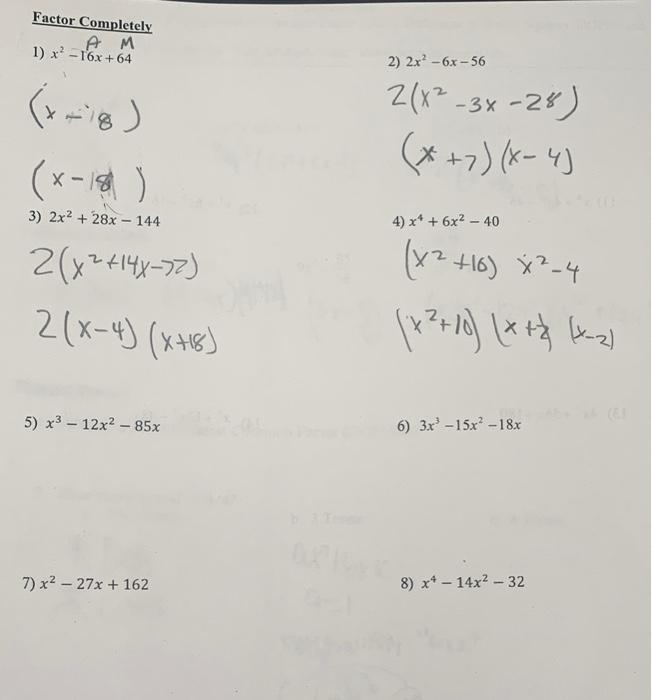 Factor Completely
A M
1) x² – 16x + 64
(x – 8)
(x – 8)
2) 2x² – 6x – 56
2(x² – 3x – 28)
(x + 7)(x – 4)
3) 2x² + 28x – 144
2(x² + 14x – 72)
2(x – 4)(x + 18)
4) x⁴ + 6x² – 40
(x² + 10) x² – 4
(x² + 10)(x + 2)(x – 2)
5) x³ – 12x² – 85x
6) 3x³ – 15x² – 18x
7) x² – 27x + 162
8) x⁴ – 14x² – 32